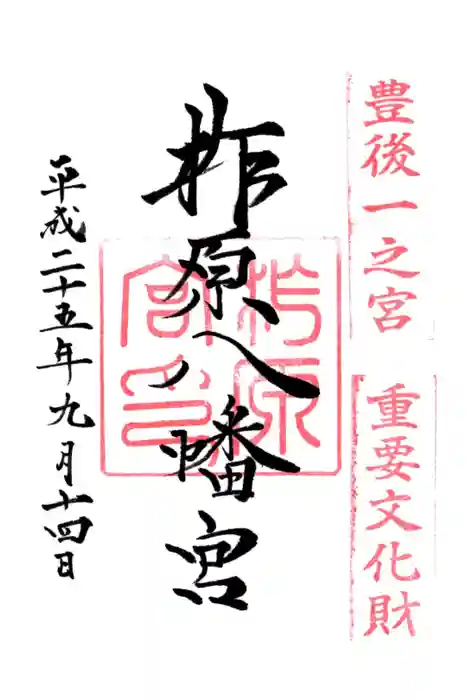 豊後一之宮
重要文化財
柞原八幡宮
柞原宮印
平成二十五年九月十四日